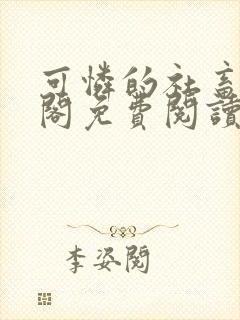 可憐的社畜
閣免費閱讀
李姿閱